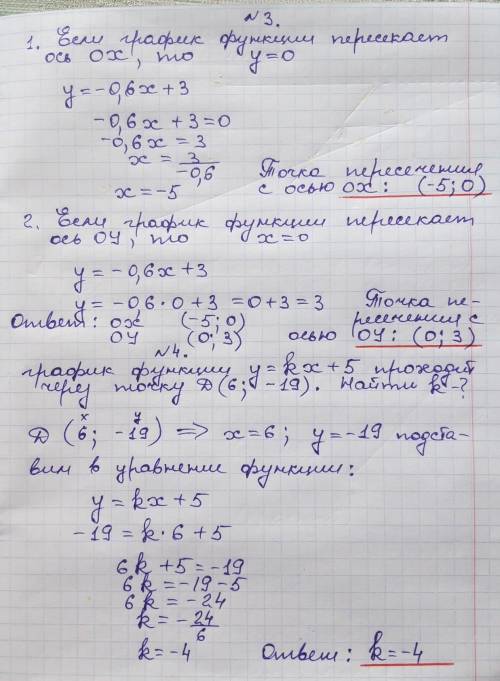 №3.
1. Если график функции пересекает
ось OX, то y=0
y=-0,6x+3
-0,6x+3=0
-0,6x=3
x=3/-0,6
x=-5
Точка пересечения
с осью OX: (-5; 0)
2. Если график функции пересекает
ось OY, то x=0
y=-0,6x+3
y=-0,6·0+3=0+3=3
Точка пе-
ресечения с
осью OY: (0; 3)
Ответ: OX (-5; 0)
OY (0; 3)
№4.
график функции y=kx+5 проходит
через точку D(6; -19). Найти k-?
x y
D (6; -19) => x=6; y=-19 подста-
вим в уравнение функции:
y=kx+5
-19=k·6+5
6k+5=-19
6k=-19-5
6k=-24
k=-24/6
k=-4
Ответ: k=-4